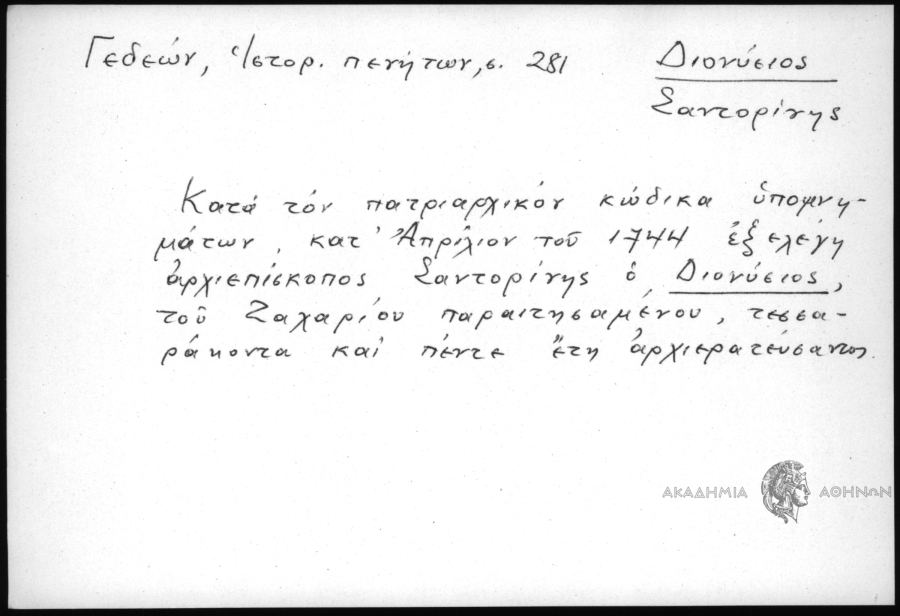 Γεδεών, Ἱστορ. πενήτων, σ. 281
Διονύσιος
Σαντορίνης
Κατά τόν πατριαρχικόν κώδικα ὑπομνη-
μάτων, κατ' Ἀπρίλιον τοῦ 1744 ἐξελέγη
ἀρχιεπίσκοπος Σαντορίνης ὁ Διονύσιος,
τοῦ Ζαχαρίου παραιτησαμένου, τεσσα-
ράκοντα καί πέντε ἔτη ἀρχιερατεύσαντος.
ΑΚΑΔΗΜΙΑ ΑΘΗΝΩΝ